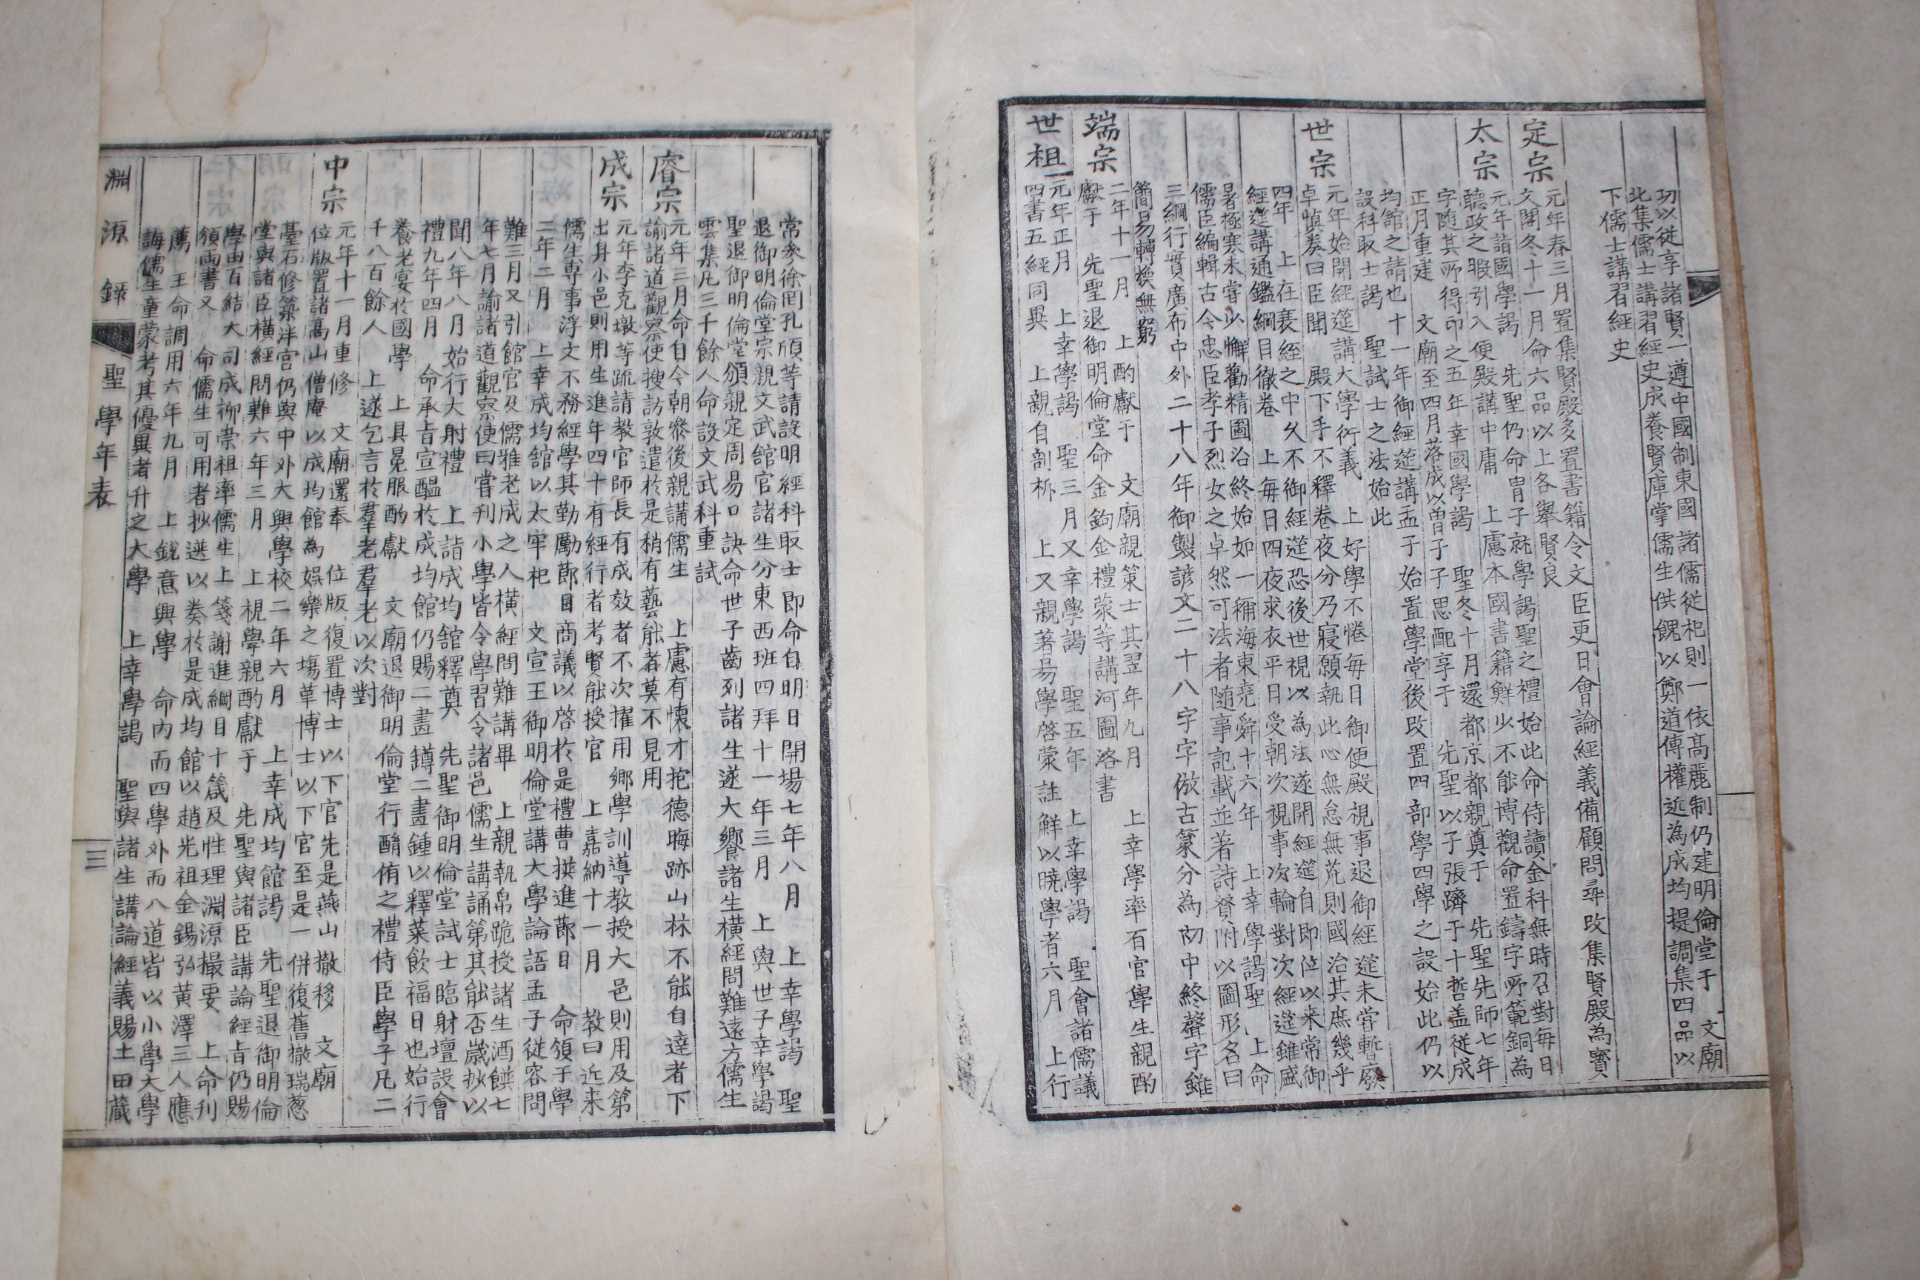 功以從享諸賢一遵中國制東國諸儒從祀則一依高麗制仍建明倫堂于 文廟
北集儒士講習經史成養賢庫掌儒生供餽以鄭道傳權近為成均提調集四品以
下儒士講習經史
定宗
元年春三月置集賢殿多置書籍令文臣更日會論經義備顧問尋改集賢殿為寶
文閣冬十一月命六品以上各舉賢良
太宗
元年詣國學謁 先聖仍命胄子就學謁聖之禮始此命侍讀金科無時召對每日
聽政之暇引入便殿講中庸 上慮本國書籍鮮少不能博觀命置鑄字所範銅為
字隨其所得印之五年幸國學謁 聖冬十月還都京都親奠于 先聖先師七年
正月重建 文廟至四月落成以曾子子思配享于 先聖以子張躋于十哲盖從成
均館之請也十一年御經筵講孟子始置學堂後改置四部學四學之設始此仍以
設科取士謁 聖試士之法始此
世宗
元年始開經筵講大學衍義 上好學不惓每日御便殿視事退御經筵未甞暫廢
卓愼奏曰臣聞 殿下手不釋卷夜分乃寢願執此心無怠無荒則國治其庶幾乎
四年 上在衰絰之中久不御經筵恐後世視以為法遂開經筵自即位以来常御
經筵講通鑑綱目徹卷 上每日四夜求衣平日受朝次視事次輪對次經筵雖盛
暑極寒未甞少懈勸精圖治終始如一稱海東堯舜十六年 上幸學謁聖 上命
儒臣編輯古今忠臣孝子烈女之卓然可法者随事記載並著詩賛附以圖形名曰
三綱行實廣布中外二十八年御製諺文二十八字字倣古篆分為初中終聲字雖
簡易轉換無窮
端宗
二年十一月 上酌獻于 文廟親策士其翌年九月 上幸學率百官學生親酌
獻于 先聖退御明倫堂命金鉤金禮蒙等講河圖洛書
世祖
元年正月 上幸學謁 聖三月又幸學謁 聖五年 上幸學謁 聖會諸儒議
四書五經同異 上親自剖柝 上又親著易學啓蒙註鮮以曉學者六月 上行
常參徐岡孔頎等請設明經科取士即命自明日開場七年八月 上幸學謁 聖
退御明倫堂宗親文武舘官諸生分東西班四拜十一年三月 上與世子幸學謁
聖退御明倫堂頒親定周易口訣命世子齒列諸生遂大饗諸生橫經問難遠方儒生
雲集凡三千餘人命設文武科重試
睿宗
元年三月命自今朝參後親講儒生 上慮有懷才抱德晦跡山林不能自達者下
諭諸道觀察使搜訪敦遣於是稍有藝能者莫不見用
成宗
元年李克墩等疏請教官師長有成效者不次擢用鄉學訓導教授大邑則用及第
出身小邑則用生進年四十有經行者考賢能授官 上嘉納十一月 教曰近来
儒生専事浮文不務經學其勤勵節目商議以啓於是禮曹撰進節目 命領于學
二年二月 上幸成均舘以太牢祀 文宣王御明倫堂講大學論語孟子從容問
難三月又引舘官及儒雅老成之人橫經問難講畢 上親執帛跪授諸生酒饌七
年七月諭諸道觀察使曰甞刊小學皆令學習令諸邑儒生講誦第其能否歲抄以
聞八年八月始行大射禮 上詣成均舘釋奠 先聖御明倫堂試士臨財壇設會
禮九年四月 命承旨宣醞於成均館仍賜二畫鐏二畫鍾以釋菜飲福日也始行
養老宴於國學 上具冕服酌獻 文廟退御明倫堂行酳侑之禮侍臣學子凡二
千八百餘人 上遂乞言於羣老羣老以次對
中宗
元年十一月重修 文廟還奉 位版復置博士以下官先是燕山撤移 文廟
位版置諸髙山僧庵以成均館為娯樂之塲革博士以下官至是一併復舊撤瑞葱
䑓石修築泮宫仍與中外大興學校二年六月 上幸成均館謁 先聖退御明倫
堂與諸臣橫經問難六年三月 上視學親酌獻于 先聖與諸臣講論經旨仍賜
學田百結大司成柳崇祖率儒生上箋謝進綱目十箴及性理淵源撮要 上命刊
頒両書又 命儒生可用者抄選以奏於是成均館以趙光祖金錫弘黃澤三人應
薦 王命調用六年九月 上銳意興學 命內而四學外而八道皆以小學大學
誨儒生童蒙考其優異者升之大學 上幸學謁 聖與諸生講論經義賜土田藏
淵源錄 聖學年表 三